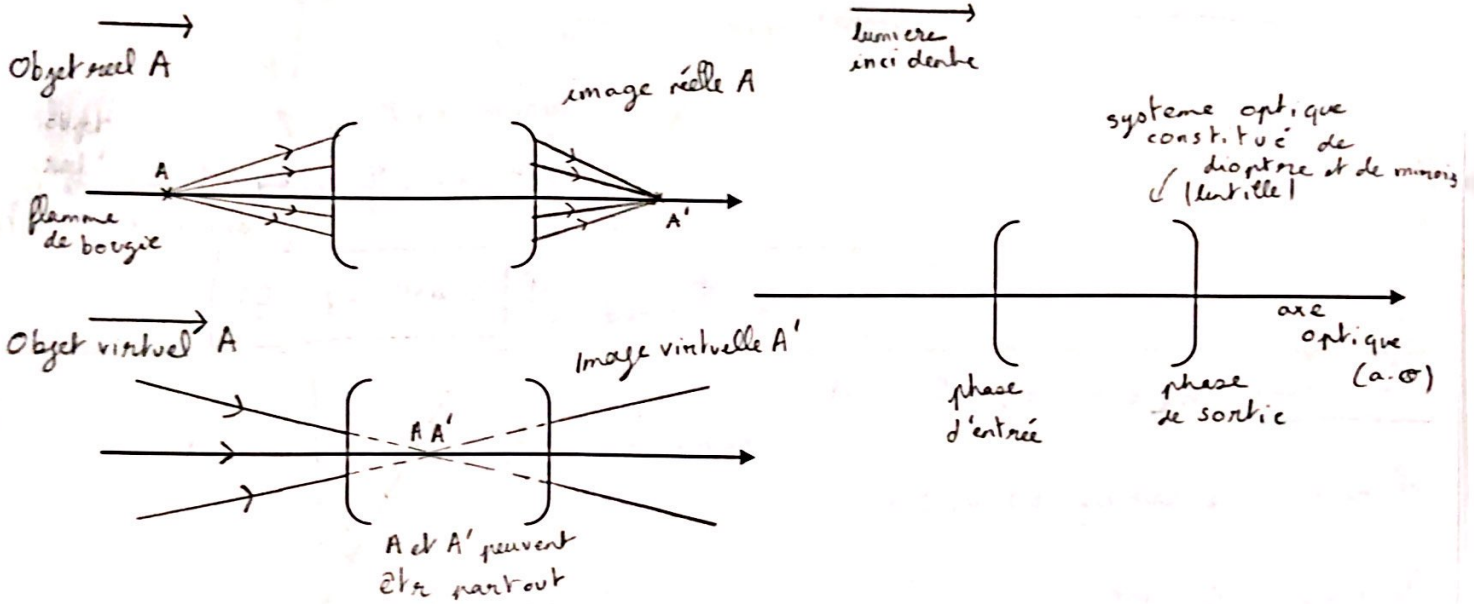 Objet réel A
image réelle A
A
A'
flamme
de bougie
Objet virtuel A
Image virtuelle A'
A A'
A et A' peuvent
êtr partout
lumiere
incidente
systeme optique
constitué de
dioptre et de mirois
(lentille)
axe
optique
(a.o)
phase
d'entrée
phase
de sortie